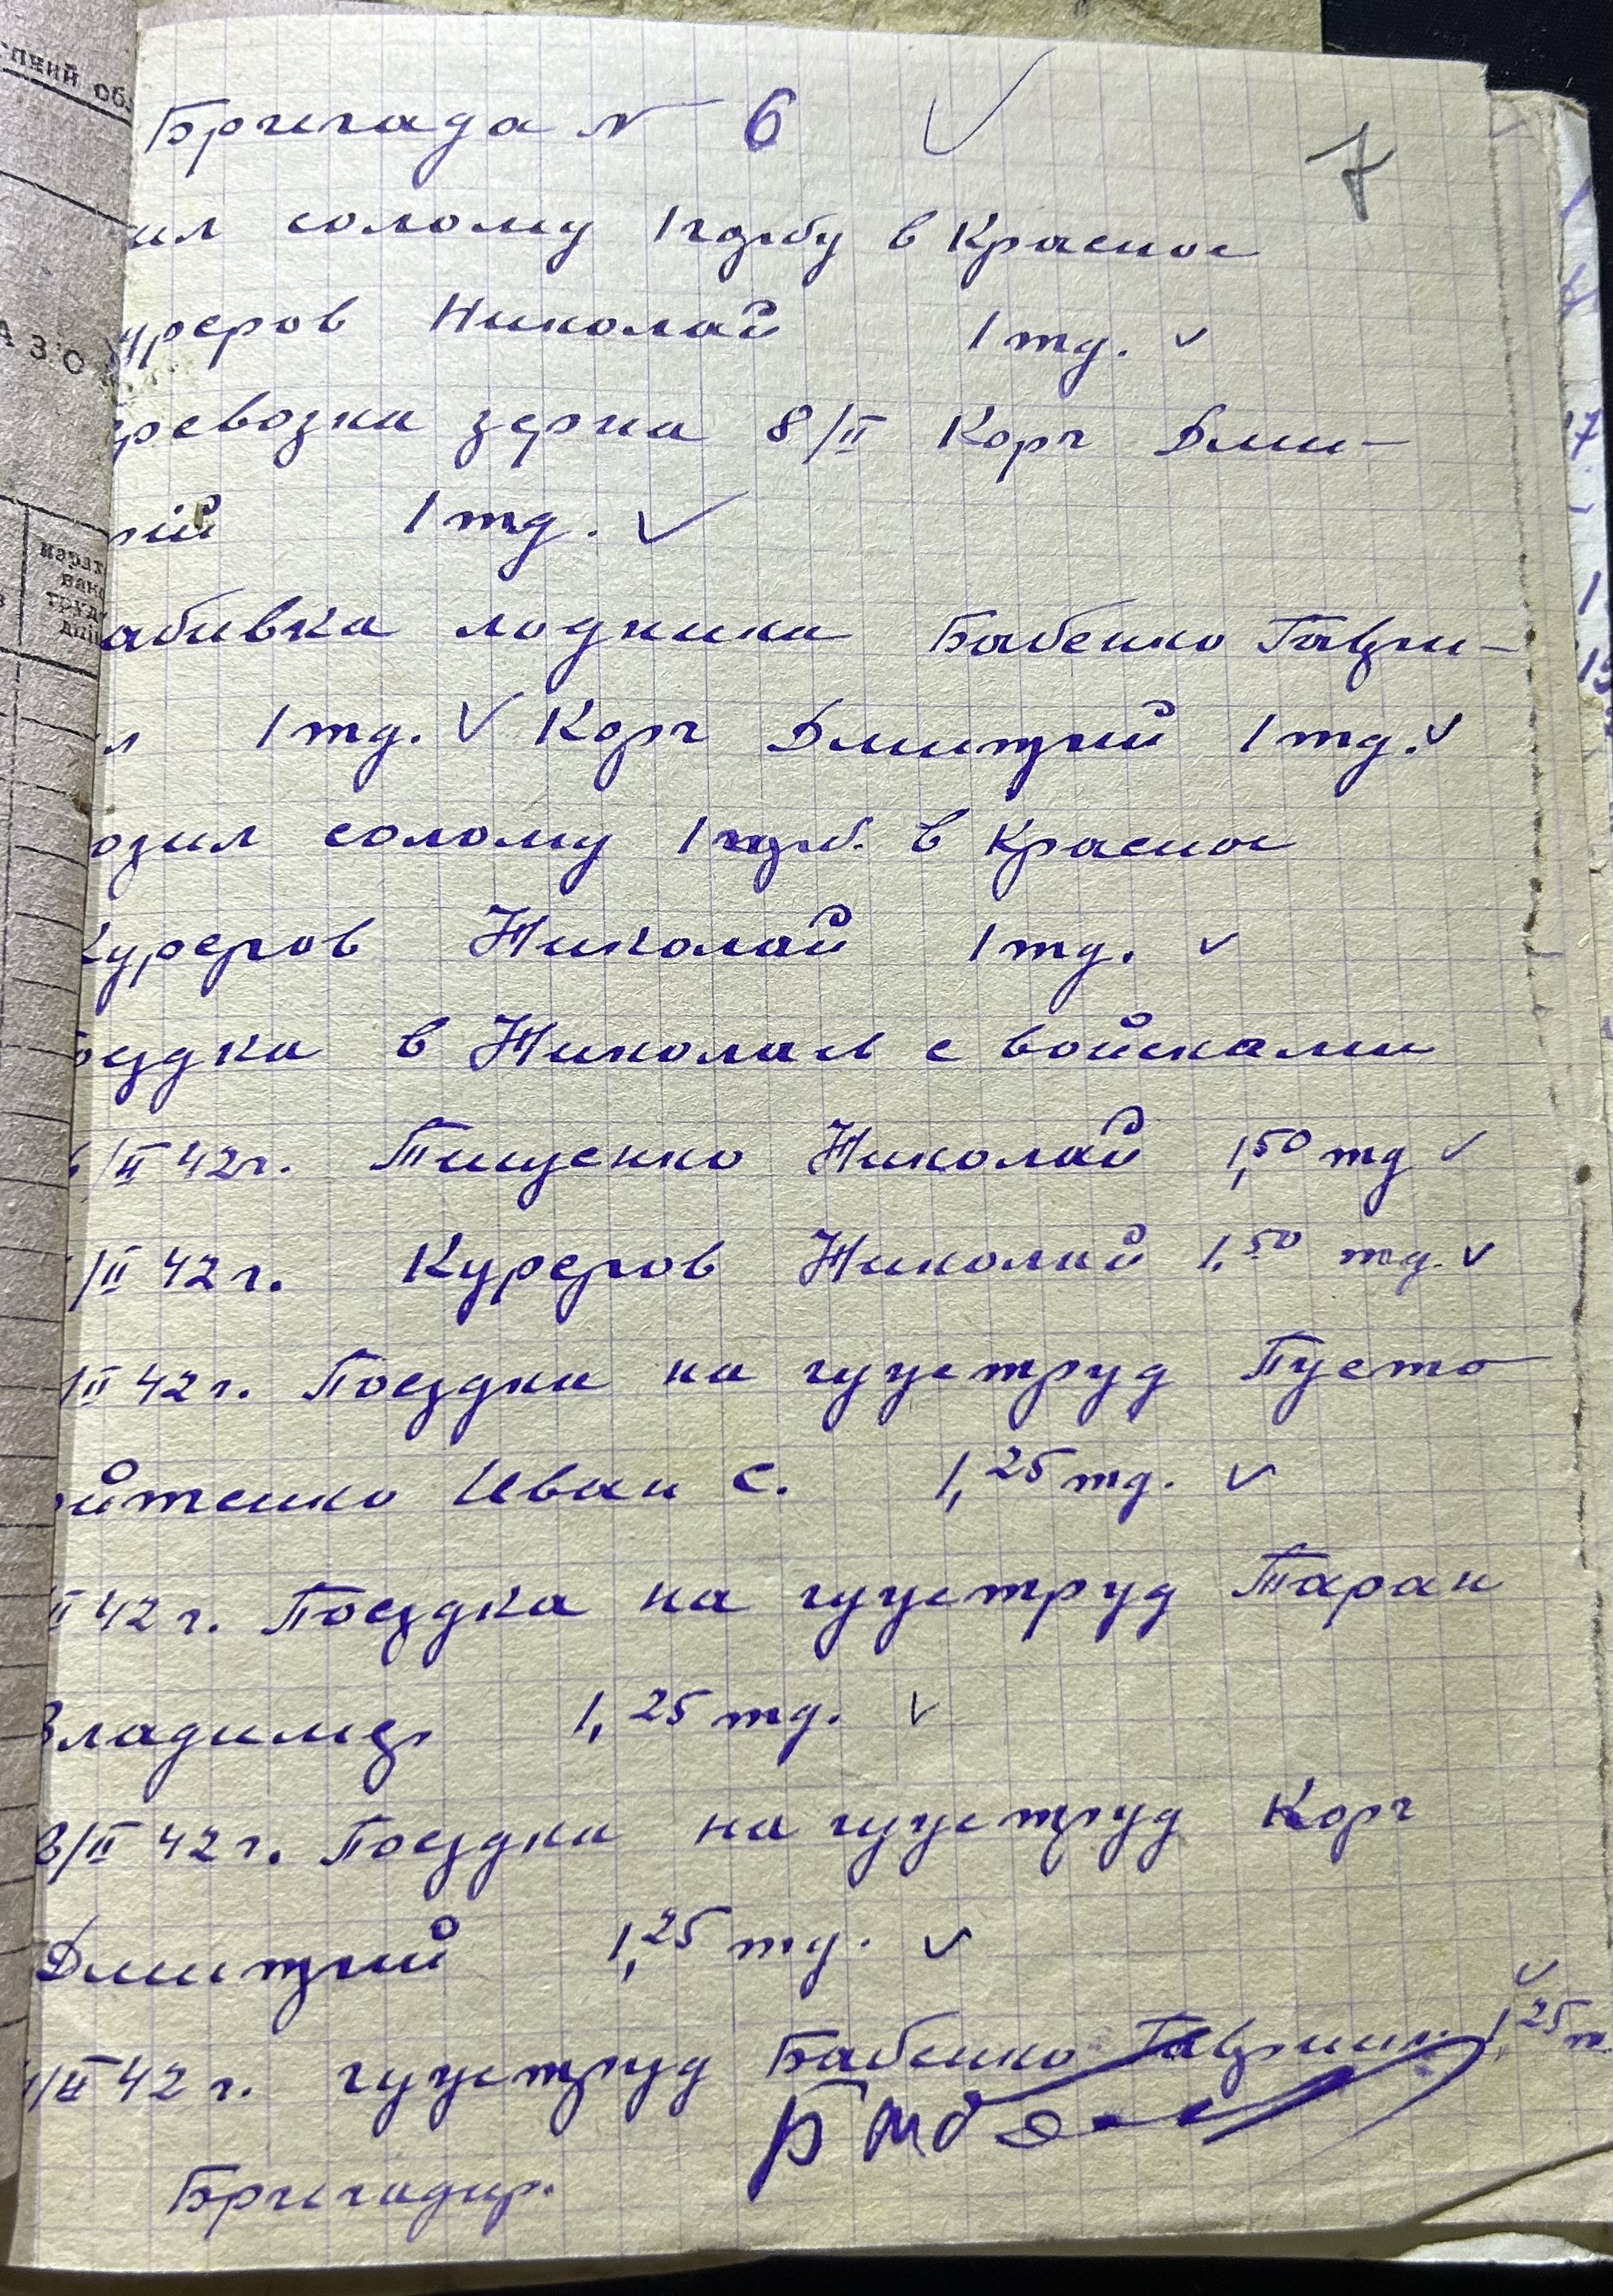 Бригада № 6 7
ил солому 1 гарбу в Красное
уреров Николай 1 тд.
ревозка зерна 8/II Корч Дми-
рий 1 тд.
абивка лодника Бабенко Гаври-
л 1 тд. Корч Дмитрий 1 тд.
озил солому 1 в Красное
Куреров Николай 1 тд.
оездка в Николаев с войсками
/II 42г. Тищенко Николай 1,50 тд
/II 42г. Куреров Николай 1,50 тд.
/II 42г. Поездка на гужтруд Пусто
ойтенко Иван С. 1,25 тд.
II 42г. Поездка на гужтруд Таран
Владимир 1,25 тд.
8/II 42г. Поездка на гужтруд Корч
Дмитрий 1,25 тд.
/II 42г. гужтруд Бабенко Гавриил 1,25 т
Бригадир.